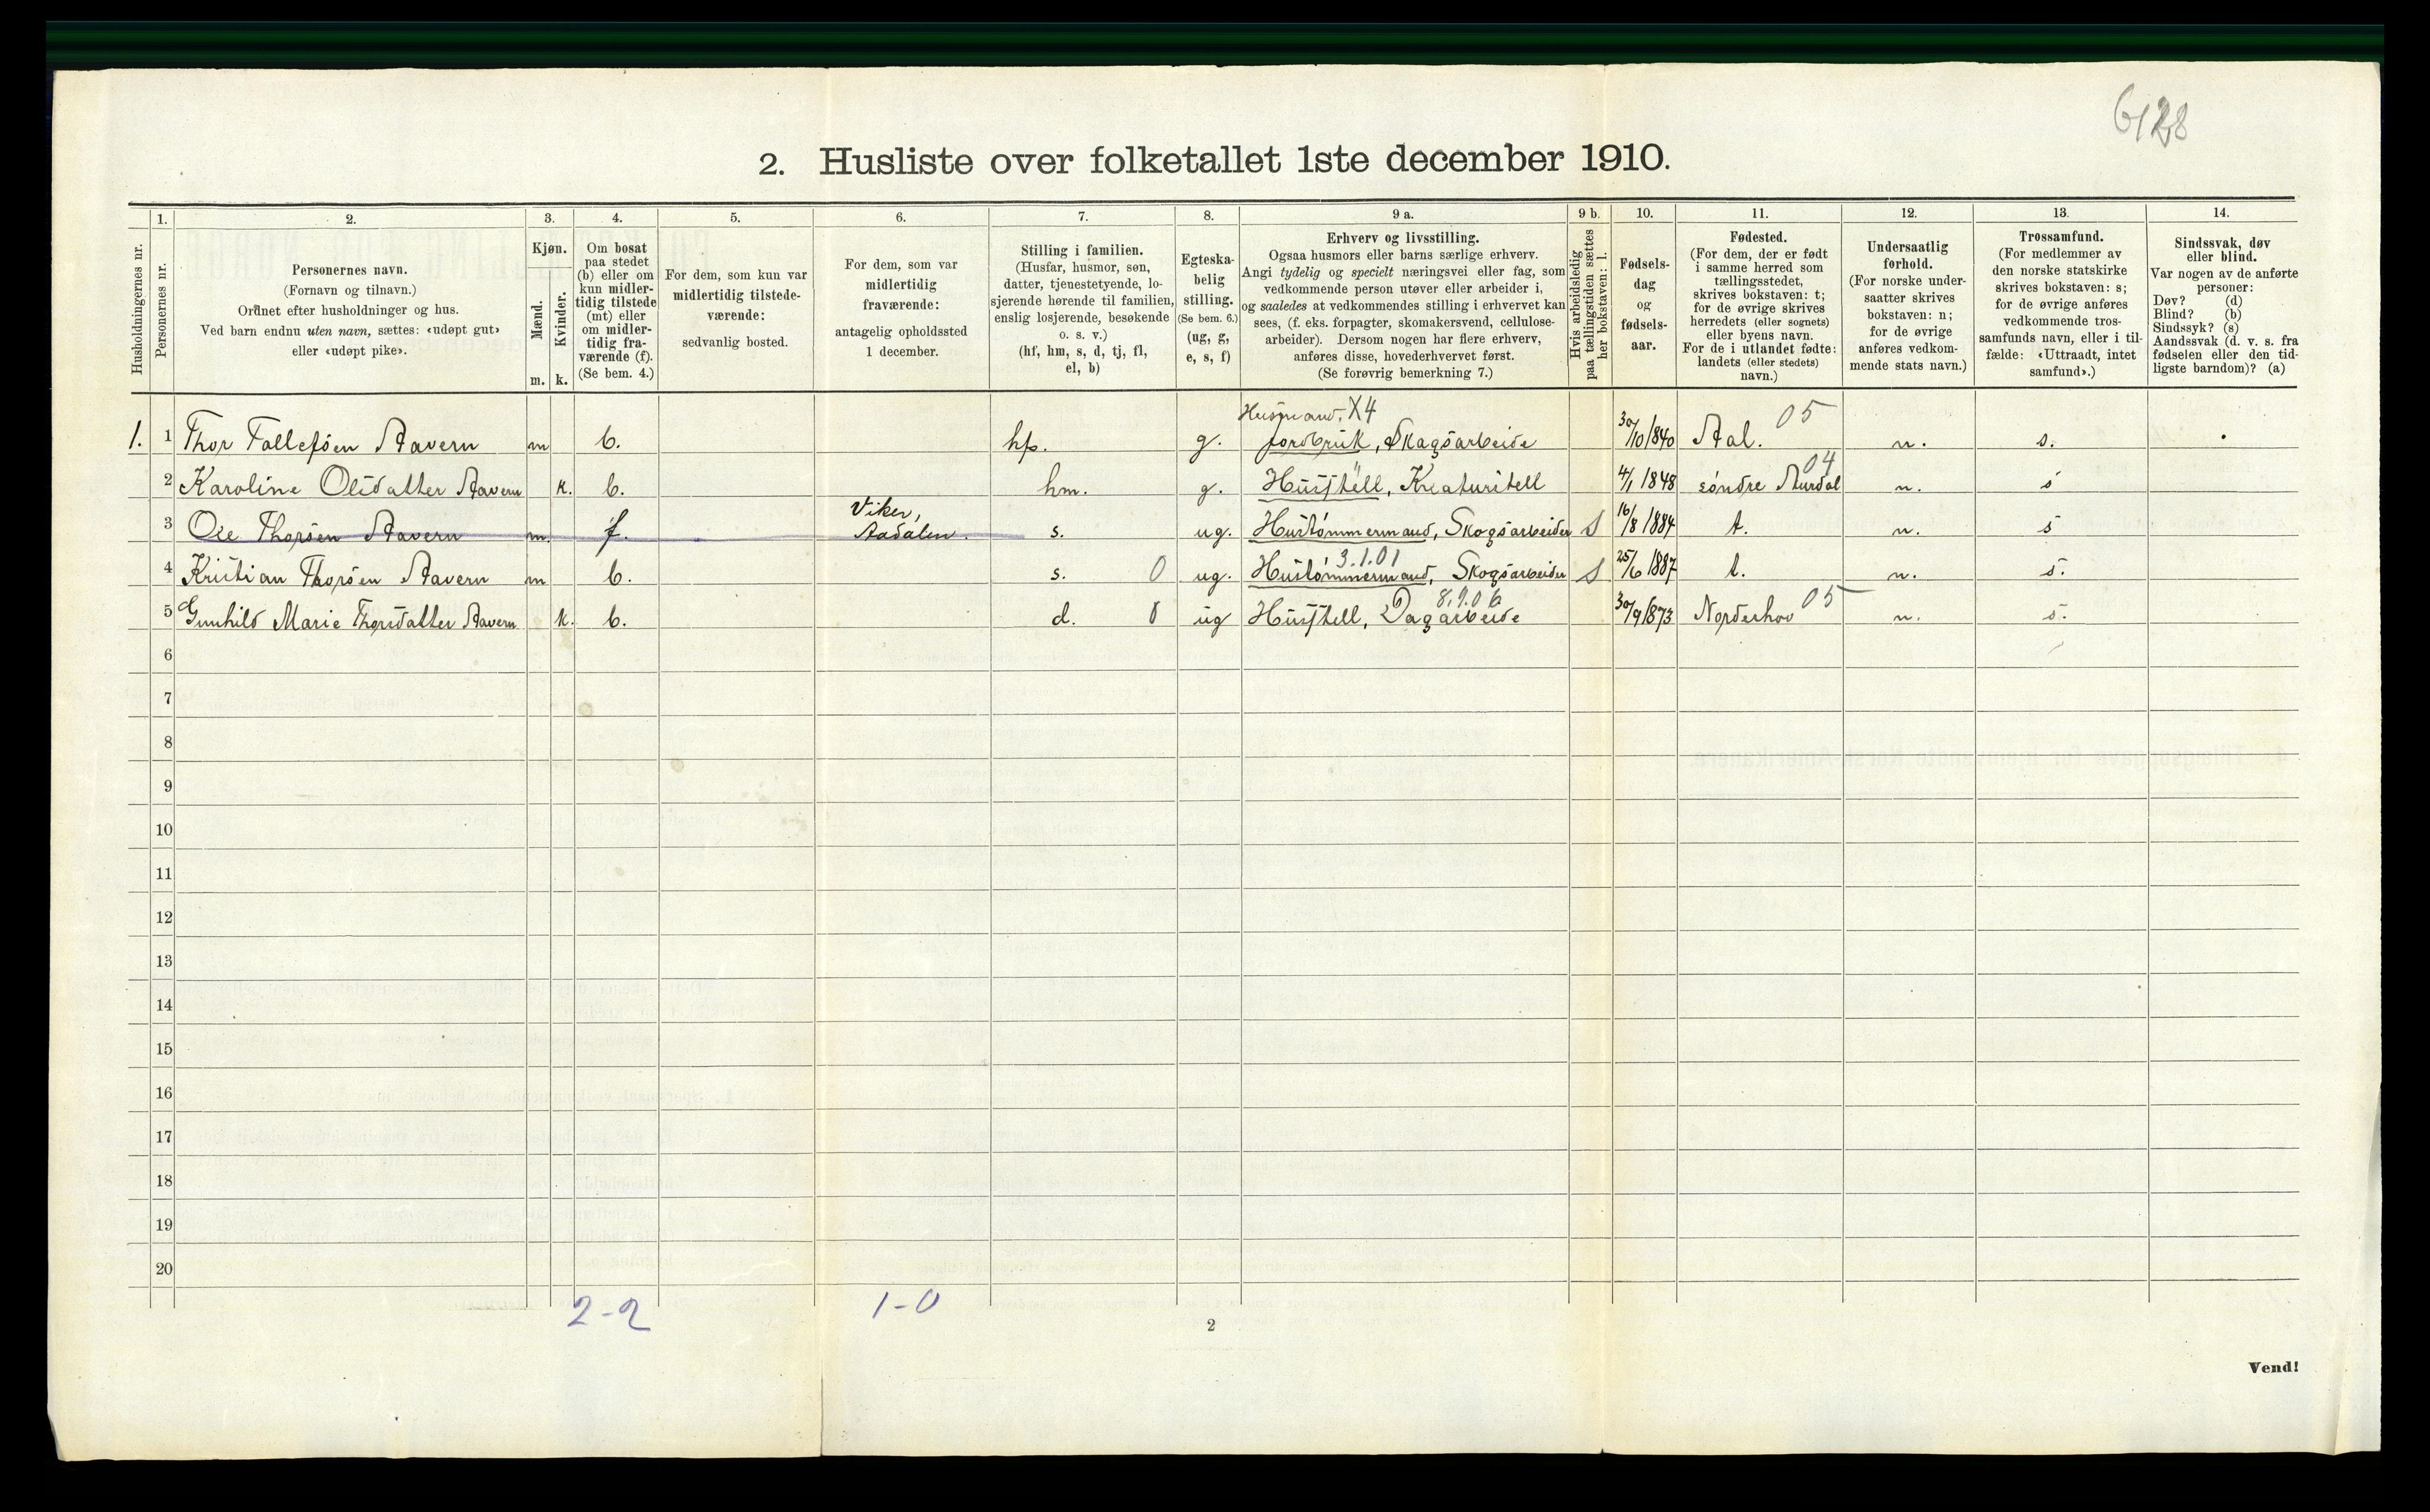 6128
2. Husliste over folketallet 1ste december 1910.
Husholdningernes nr.
1.
Personernes nr.
2.
Personernes navn.
(Fornavn og tilnavn.)
Ordnet efter husholdninger og hus.
Ved barn endnu uten navn, sættes: «udøpt gut»
eller «udøpt pike».
3.
Kjøn.
Mænd.
Kvinder.
m. k.
4.
Om bosat
paa stedet
(b) eller om
kun midler-
tidig tilstede
(mt) eller
om midler-
tidig fra-
værende (f).
(Se bem. 4.)
5.
For dem, som kun var
midlertidig tilstede-
værende:
sedvanlig bosted.
6.
For dem, som var
midlertidig
fraværende:
antagelig opholdssted
1 december.
7.
Stilling i familien.
(Husfar, husmor, søn,
datter, tjenestetyende, lo-
sjerende hørende til familien,
enslig losjerende, besøkende
o. s. v.)
(hf, hm, s, d, tj, fl,
el, b)
8.
Egteska-
belig
stilling.
(Se bem. 6.)
(ug, g,
e, s, f)
9 a.
Erhverv og livsstilling.
Ogsaa husmors eller barns særlige erhverv.
Angi tydelig og specielt næringsvei eller fag, som
vedkommende person utøver eller arbeider i,
og saaledes at vedkommendes stilling i erhvervet kan
sees, (f. eks. forpagter, skomakersvend, cellulose-
arbeider). Dersom nogen har flere erhverv,
anføres disse, hovederhvervet først.
(Se forøvrig bemerkning 7.)
9 b.
Hvis arbeidsledig
paa tællingstiden sættes
her bokstaven: l.
10.
Fødsels-
dag
og
fødsels-
aar.
11.
Fødested.
(For dem, der er født
i samme herred som
tællingsstedet,
skrives bokstaven: t;
for de øvrige skrives
herredets (eller sognets)
eller byens navn.
For de i utlandet fødte:
landets (eller stedets)
navn.)
12.
Undersaatlig
forhold.
(For norske under-
saatter skrives
bokstaven: n;
for de øvrige
anføres vedkom-
mende stats navn.)
13.
Trossamfund.
(For medlemmer av
den norske statskirke
skrives bokstaven: s;
for de øvrige anføres
vedkommende tros-
samfunds navn, eller i til-
fælde: «Uttraadt, intet
samfund».)
14.
Sindssvak, døv
eller blind.
Var nogen av de anførte
personer:
Døv? (d)
Blind? (b)
Sindssyk? (s)
Aandssvak (d. v. s. fra
fødselen eller den tid-
ligste barndom)? (a)
Husmand, X4
1. 1 Thor Tollefsen Stavern m b. hf. g. jordbruk, Skogsarbeide 30/10 1840 Aal. 05 n. s.
2 Karoline Olsdatter Stavern k. b. hm. g. Husstell, Kreaturstell 4/1 1848 söndre Aurdal 04 n. s
Viker,
3 Ole Thorsen Stavern m. f. Aadalen. s. ug. Hustømmermand, Skogsarbeider s 16/8 1884 t. n. s
3.1.01
4 Kristian Thorsen Stavern m b. s. 0 ug. Hustømmermand, Skogsarbeider s 25/6 1887 t. n. s.
8.9.06
5 Gunhild Marie Thorsdatter Stavern k. b. d. 0 ug Husstell, Dagarbeide 30/9 1873 Norderhov 05 n. s.
6
7
8
9
10
11
12
13
14
15
16
17
18
19
20
2-2 1-0
2
Vend!